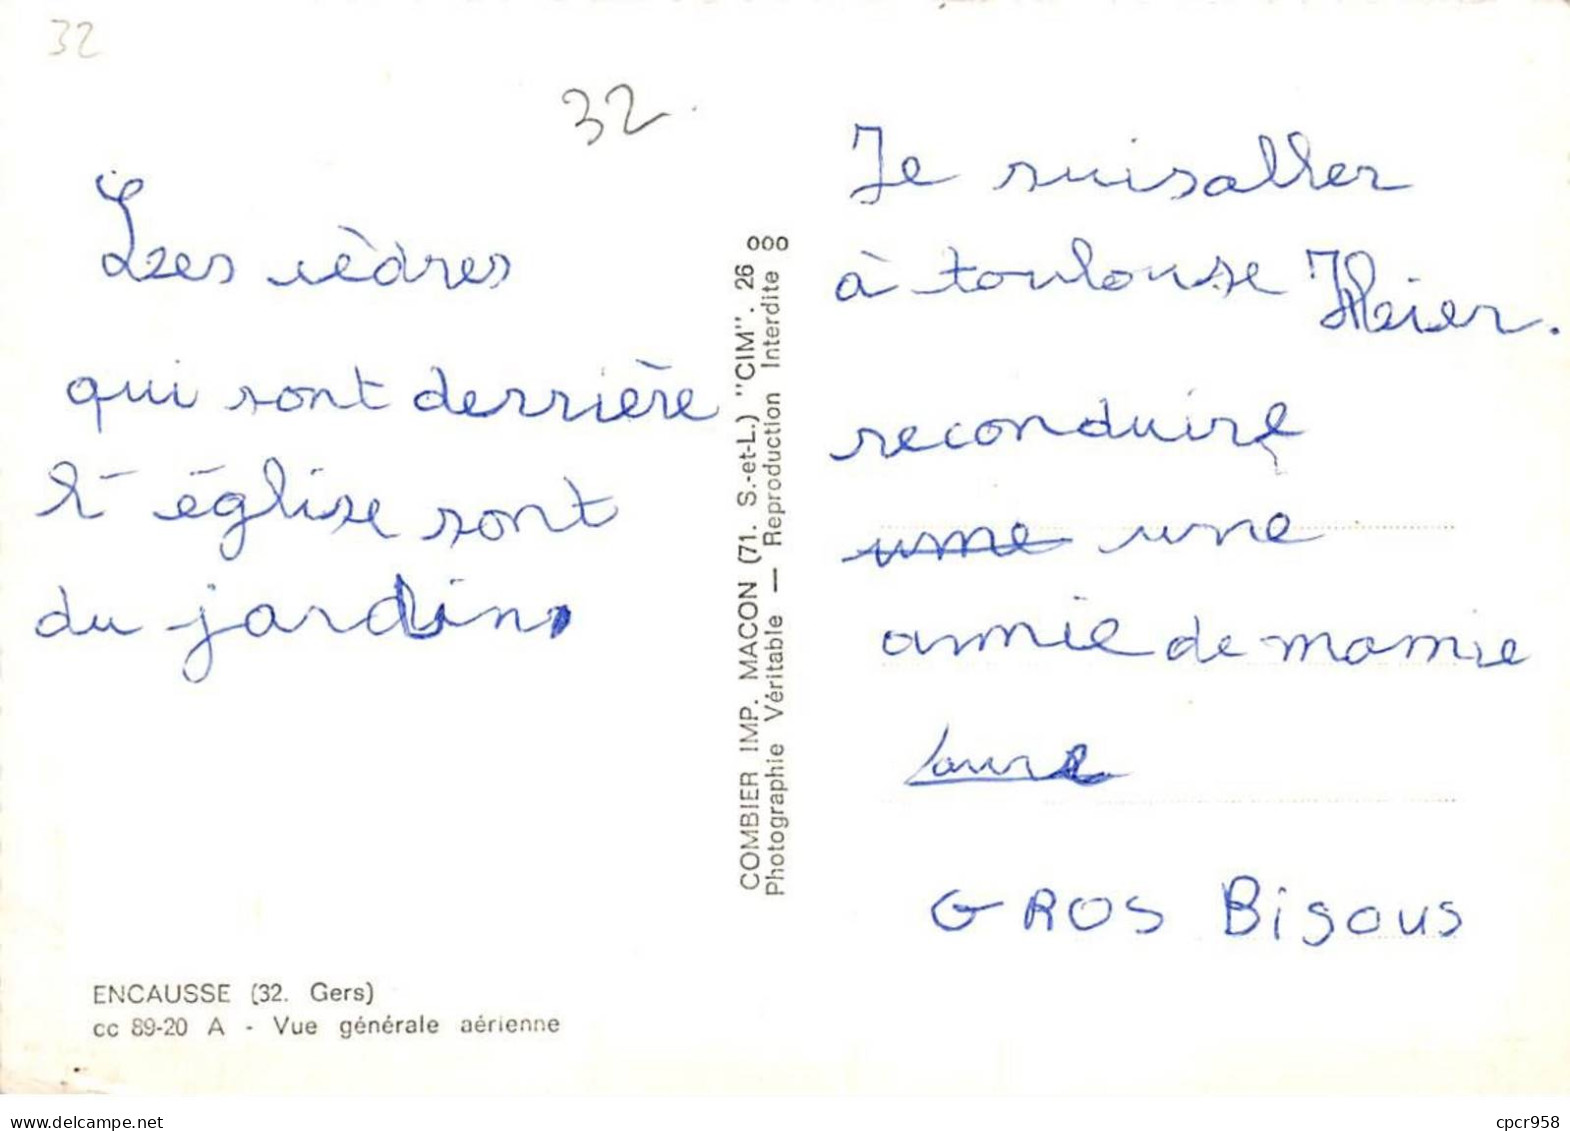 32
32
Les cèdres
qui sont derrière
l'église sont
du jardin
COMBIER IMP. MACON (71. S.-et-L.) "CIM". 26
Photographie Véritable — Reproduction Interdite
Je suisaller
à toulouse Heier.
reconduire
ume une
amie de mamie
Laure
GROS Bisous
ENCAUSSE (32. Gers)
cc 89-20 A - Vue générale aérienne
delcampe.net
cpcr958